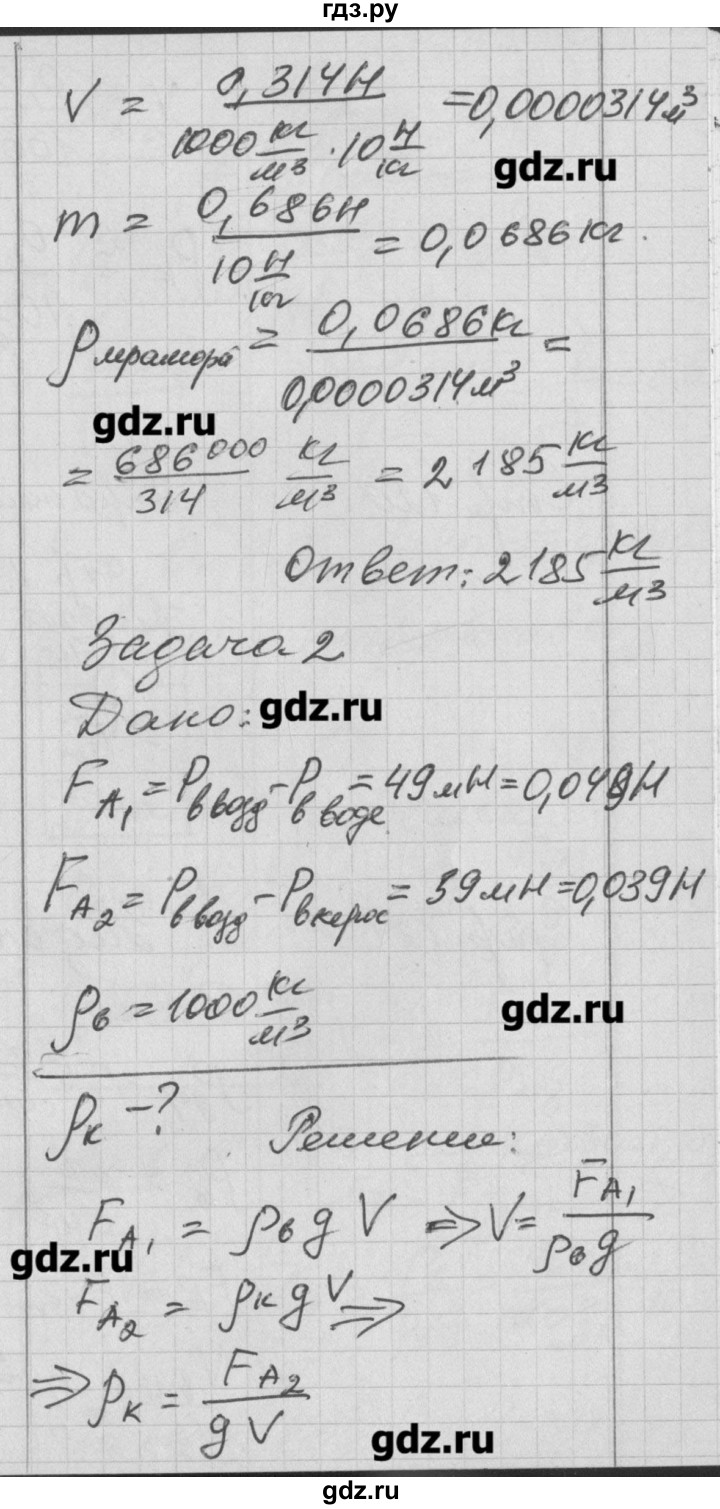 гдз.ру
V = 0,314Н / (1000 кг/м³ · 10 Н/кг) = 0,0000314м³
gdz.ru
m = 0,686Н / (10 Н/кг) = 0,0686кг.
ρмрамора = 0,0686кг / 0,0000314м³ =
gdz.ru
= 686000/314 кг/м³ = 2185 кг/м³
Ответ: 2185 кг/м³
Задача 2
Дано:
gdz.ru
F_A₁ = Pв возд - Pв воде = 49мН = 0,049Н
F_A₂ = Pв возд - Pв керос = 39мН = 0,039Н
ρв = 1000 кг/м³
gdz.ru
ρк - ?
Решение:
F_A₁ = ρв g V ⇒ V = F_A₁ / ρв g
gdz.ru
F_A₂ = ρк g V ⇒
⇒ ρк = F_A₂ / g V
gdz.ru
gdz.ru